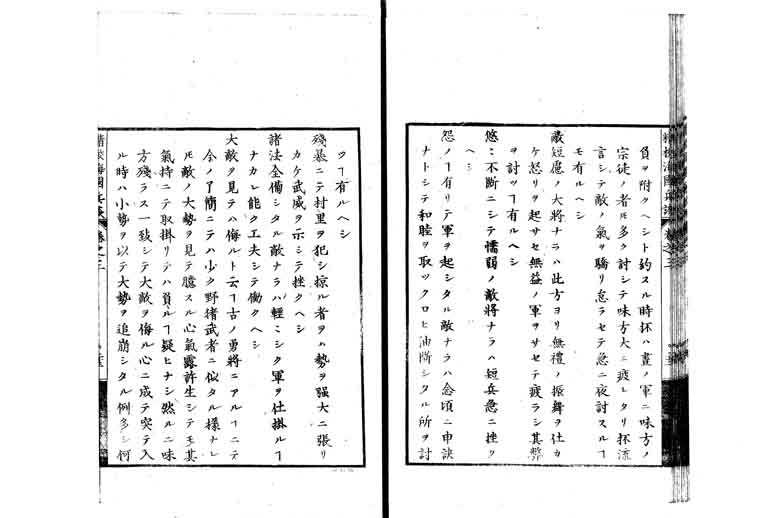 負ヲ附クヘシト約スル時抔ハ晝ノ軍ニ味方ノ
宗徒ノ者𪜈多ク討シテ味方大ニ疲レタリ抔流
言シテ敵ノ氣ヲ驕リ怠ラセテ急ニ夜討スルヿ
モ有ルヘシ
敵短慮ノ大將ナラハ此方ヨリ無禮ノ振舞ヲ仕カ
ケ怒リヲ起サセ無益ノ軍ヲサセテ疲ラシ其弊
ヲ討ツヿ有ルヘシ
悠々不斷ニシテ懦弱ノ敵將ナラハ短兵急ニ挫ク
ヘシ
怨ノヿ有リテ軍ヲ起シタル敵ナラハ念頃ニ申訣
ナトシテ和睦ヲ取ックロヒ油斷シタル所ヲ討
クヿ有ルヘシ
殘暴ニテ村里ヲ犯シ掠ル者ヲハ勢ヲ强大ニ張リ
カケ武威ヲ示シテ挫クヘシ
諸法全備シタル敵ナラハ輕々シク軍ヲ仕掛ルヿ
ナカレ能ク工夫シテ働クヘシ
大敵ヲ見テハ侮ルト云ヿ古ノ勇將ニアルヿニテ
今ノ了簡ニテハ少ク野猪武者ニ似タル樣ナレ
𪜈敵ノ大勢ヲ見テ臆スル心氣露許生シテモ其
氣持ニテ取掛リテハ負ルヿ疑ヒナシ然ルニ味
方殘ラス一致シテ大敵ヲ侮ル心ニ成テ突テ入
ル時ハ小勢ヲ以テ大勢ヲ追崩シタル例多シ何
精校海國兵談 卷之三